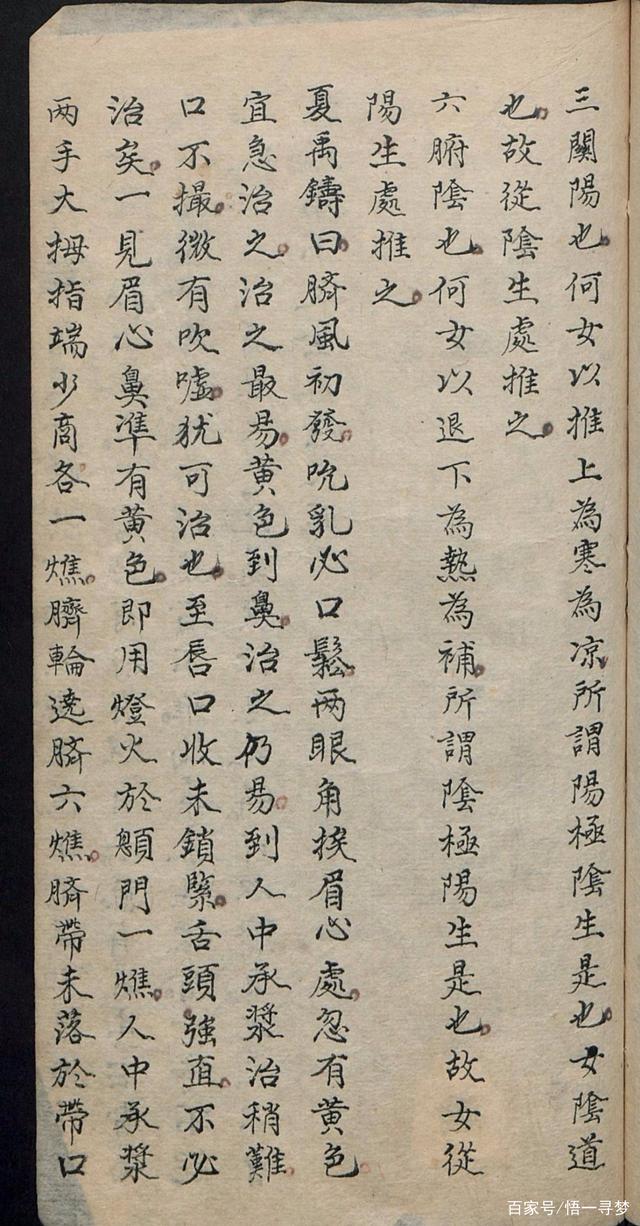 三關陽也何女以推上為寒為凉所謂陽極陰生是也女陰道
也故從陰生處推之
六腑陰也何女以退下為熱為補所謂陰極陽生是也故女從
陽生處推之
夏禹鑄曰臍風初發吮乳必口鬆兩眼角挨眉心處忽有黄色
宜急治之治之最易黄色到鼻治之仍易到人中承漿治稍難
口不撮微有吹噓犹可治也至唇口收未鎖緊舌頭強直不必
治矣一見眉心鼻準有黄色即用燈火於顖門一燋人中承漿
两手大拇指端少商各一燋臍輪遶臍六燋臍帶未落於帶口
百家号/悟一寻梦